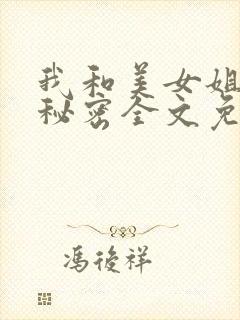 我和美女姐
秘密全文免
馮後祥